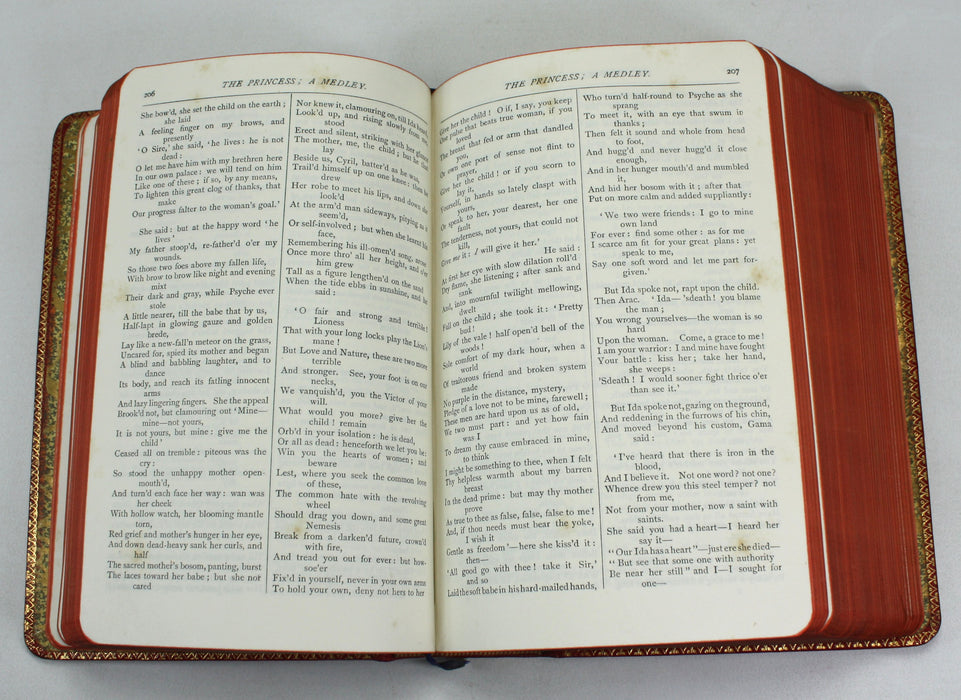 206
THE PRINCESS; A MEDLEY.
She bow'd, she set the child on the earth;
she laid
A feeling finger on my brows, and
presently
'O Sire,' she said, 'he lives: he is not
dead:
O let me have him with my brethren here
In our own palace: we will tend on him
Like one of these; if so, by any means,
To lighten this great clog of thanks, that
make
Our progress falter to the woman's goal.'
She said: but at the happy word 'he
lives'
My father stoop'd, re-father'd o'er my
wounds.
So those two foes above my fallen life,
With brow to brow like night and evening
mixt
Their dark and gray, while Psyche ever
stole
A little nearer, till the babe that by us,
Half-lapt in glowing gauze and golden
brede,
Lay like a new-fall'n meteor on the grass,
Uncared for, spied its mother and began
A blind and babbling laughter, and to
dance
Its body, and reach its fatling innocent
arms
And lazy lingering fingers. She the appeal
Brook'd not, but clamouring out 'Mine—
mine—not yours,
It is not yours, but mine: give me the
child'
Ceased all on tremble: piteous was the
cry:
So stood the unhappy mother open-
mouth'd,
And turn'd each face her way: wan was
her cheek
With hollow watch, her blooming mantle
torn,
Red grief and mother's hunger in her eye,
And down dead-heavy sank her curls, and
half
The sacred mother's bosom, panting, burst
The laces toward her babe; but she nor
cared
Nor knew it, clamouring on, till Ida heard,
Look'd up, and rising slowly from me,
stood
Erect and silent, striking with her glance
The mother, me, the child; but he that
lay
Beside us, Cyril, batter'd as he was,
Trail'd himself up on one knee: then he
drew
Her robe to meet his lips, and down she
look'd
At the arm'd man sideways, pitying as it
seem'd,
Or self-involved; but when she learnt his
face,
Remembering his ill-omen'd song, arose
Once more thro' all her height, and o'er
him grew
Tall as a figure lengthen'd on the sand
When the tide ebbs in sunshine, and he
said:
'O fair and strong and terrible!
Lioness
That with your long locks play the Lion's
mane!
But Love and Nature, these are two more
terrible
And stronger. See, your foot is on our
necks,
We vanquish'd, you the Victor of your
will.
What would you more? give her the
child! remain
Orb'd in your isolation: he is dead,
Or all as dead: henceforth we let you be:
Win you the hearts of women; and
beware
Lest, where you seek the common love
of these,
The common hate with the revolving
wheel
Should drag you down, and some great
Nemesis
Break from a darken'd future, crown'd
with fire,
And tread you out for ever: but how-
soe'er
Fix'd in yourself, never in your own arms
To hold your own, deny not hers to her
THE PRINCESS; A MEDLEY.
207
Give her the child! O if, I say, you keep
One pulse that beats true woman, if you
loved
The breast that fed or arm that dandled
you,
Or own one port of sense not flint to
prayer,
Give her the child! or if you scorn to
lay it,
Yourself, in hands so lately claspt with
yours,
Or speak to her, your dearest, her one
fault
The tenderness, not yours, that could not
kill,
Give me it: I will give it her.'
He said:
At first her eye with slow dilation roll'd
Dry flame, she listening; after sank and
sank
And, into mournful twilight mellowing,
dwelt
Full on the child; she took it: 'Pretty
bud!
Lily of the vale! half open'd bell of the
woods!
Sole comfort of my dark hour, when a
world
Of traitorous friend and broken system
made
No purple in the distance, mystery,
Pledge of a love not to be mine, farewell;
These men are hard upon us as of old,
We two must part: and yet how fain
was I
To dream thy cause embraced in mine,
to think
I might be something to thee, when I felt
Thy helpless warmth about my barren
breast
In the dead prime: but may thy mother
prove
As true to thee as false, false, false to me!
And, if thou needs must bear the yoke,
I wish it
Gentle as freedom'—here she kiss'd it:
then—
'All good go with thee! take it Sir,'
and so
Laid the soft babe in his hard-mailed hands,
Who turn'd half-round to Psyche as she
sprang
To meet it, with an eye that swum in
thanks;
Then felt it sound and whole from head
to foot,
And hugg'd and never hugg'd it close
enough,
And in her hunger mouth'd and mumbled
it,
And hid her bosom with it; after that
Put on more calm and added suppliantly:
'We two were friends: I go to mine
own land
For ever: find some other: as for me
I scarce am fit for your great plans: yet
speak to me,
Say one soft word and let me part for-
given.'
But Ida spoke not, rapt upon the child.
Then Arac. 'Ida—'sdeath! you blame
the man;
You wrong yourselves—the woman is so
hard
Upon the woman. Come, a grace to me!
I am your warrior: I and mine have fought
Your battle: kiss her; take her hand,
she weeps:
'Sdeath! I would sooner fight thrice o'er
than see it.'
But Ida spoke not, gazing on the ground,
And reddening in the furrows of his chin,
And moved beyond his custom, Gama
said:
'I've heard that there is iron in the
blood,
And I believe it. Not one word? not one?
Whence drew you this steel temper? not
from me,
Not from your mother, now a saint with
saints.
She said you had a heart—I heard her
say it—
"Our Ida has a heart"—just ere she died—
"But see that some one with authority
Be near her still" and I—I sought for
one—